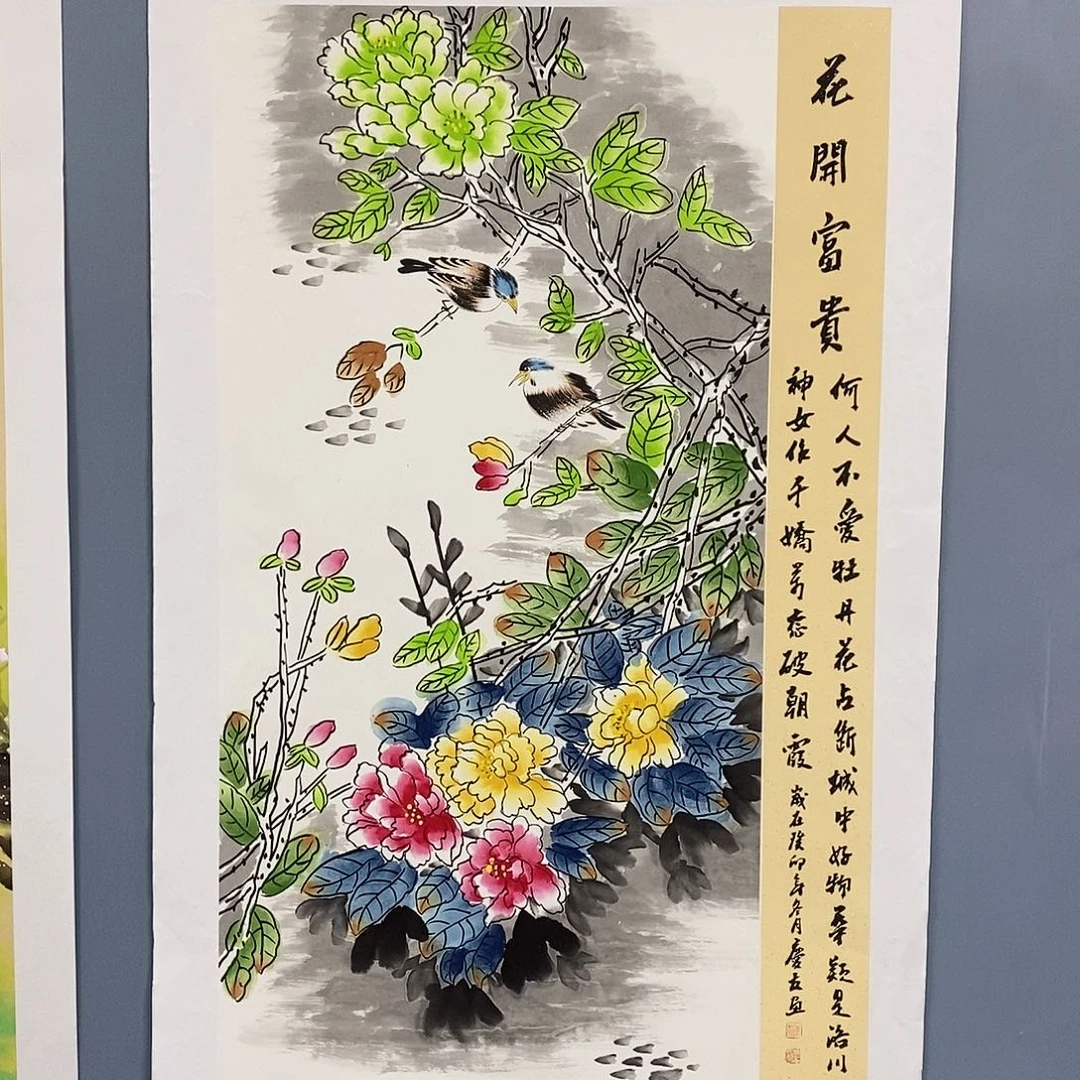 花開富貴
何人不愛牡丹花占斷城中好物華疑是洛川
神女作千嬌萬态破朝霞
歲在癸卯年冬月慶画